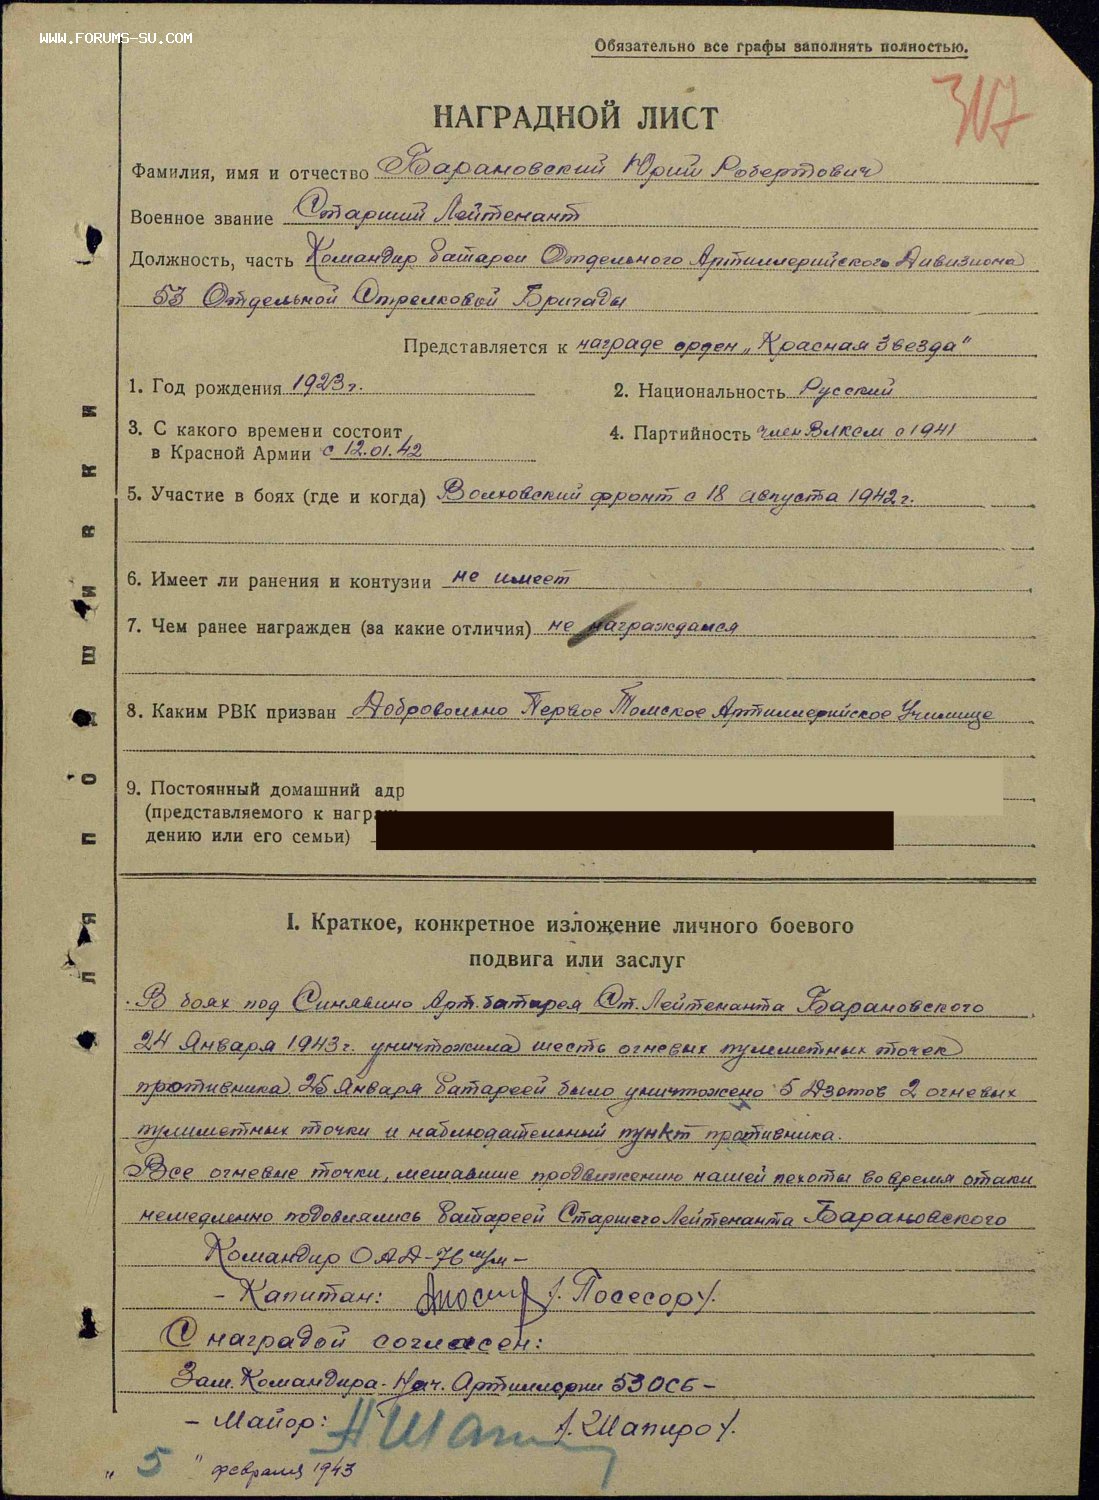 WWW.FORUMS-SU.COM
Обязательно все графы заполнять полностью.
317
НАГРАДНОЙ ЛИСТ
Фамилия, имя и отчество Барановский Юрий Робертович
Военное звание Старший Лейтенант
Должность, часть Командир батареи Отдельного Артиллерийского Дивизиона
53 Отдельной Стрелковой Бригады
Представляется к награде орден „Красная Звезда"
1. Год рождения 1923 г.
2. Национальность Русский
3. С какого времени состоит
в Красной Армии с 12.01.42
4. Партийность член ВЛКСМ с 1941
5. Участие в боях (где и когда) Волховский фронт с 18 августа 1942 г.
6. Имеет ли ранения и контузии не имеет
7. Чем ранее награжден (за какие отличия) не награждался
8. Каким РВК призван Добровольно Первое Томское Артиллерийское Училище
9. Постоянный домашний адр
(представляемого к награж-
дению или его семьи)
для подшивки
I. Краткое, конкретное изложение личного боевого
подвига или заслуг
В боях под Синявино Арт. батарея Ст. Лейтенанта Барановского
24 Января 1943 г. уничтожила шесть огневых пулеметных точек
противника. 25 Января батареей было уничтожено 5 Дзотов 2 огневых
пулиметных точки и наблюдательный пункт противника.
Все огневые точки, мешавшие продвижению нашей пехоты во время атаки
немедленно подовлялись батареей Старшего Лейтенанта Барановского
Командир ОАД - 76 м/м -
- Капитан: /. Посесор /.
С наградой согласен:
Зам. Командира - Нач. Артиллерии 53 ОСБ -
- Майор: НШап /. Шапиро /.
" 5 " февраля 1943